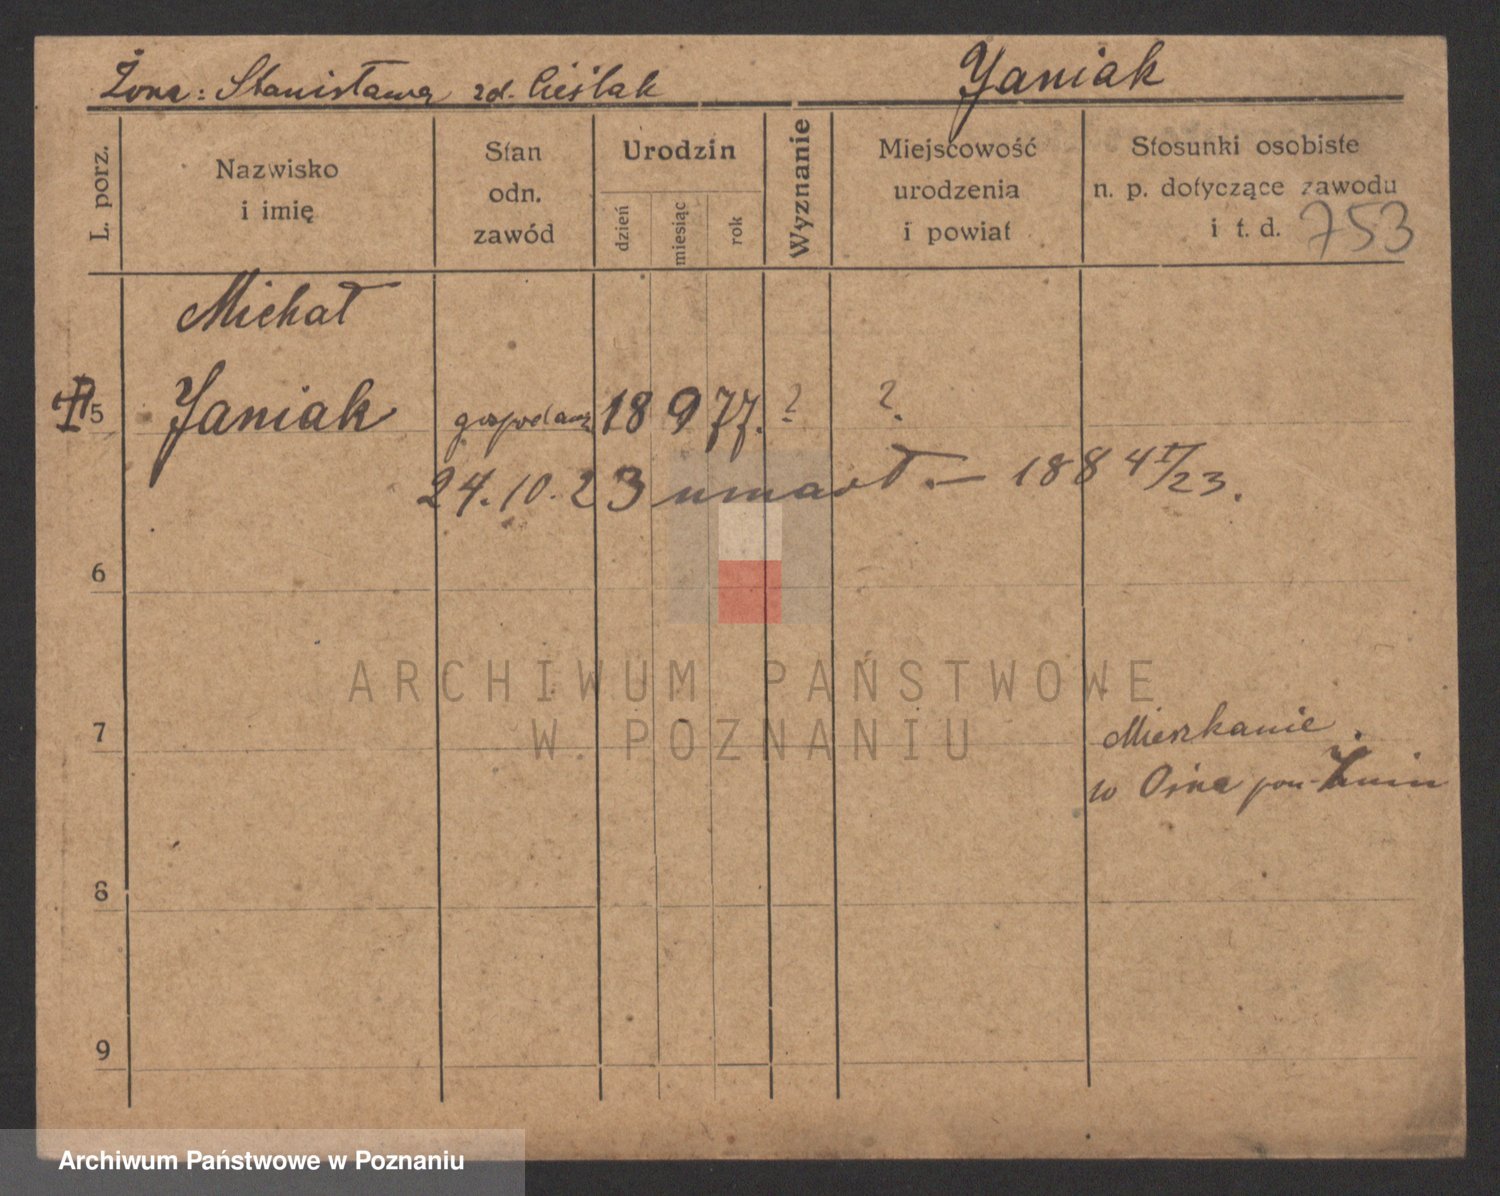 Żona: Stanisława zd. Cieślak Janiak
L. porz.
Nazwisko
i imię
Stan
odn.
zawód
Urodzin
dzień
miesiąc
rok
Wyznanie
Miejscowość
urodzenia
i powiat
Stosunki osobiste
n. p. dotyczące zawodu
i t. d. 753
Michał
5 Janiak gospodarz 18 9 77. ? ?.
24.10.23 umarł. — 188
6
ARCHIWUM PAŃSTWOWE
W POZNANIU
7 Mieszkanie
w Osna pow. Żnin
8
9
Archiwum Państwowe w Poznaniu